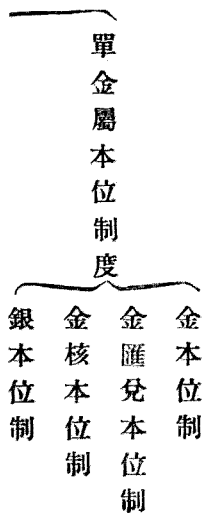 單金屬本位制度
金本位制
金匯兌本位制
金核本位制
銀本位制